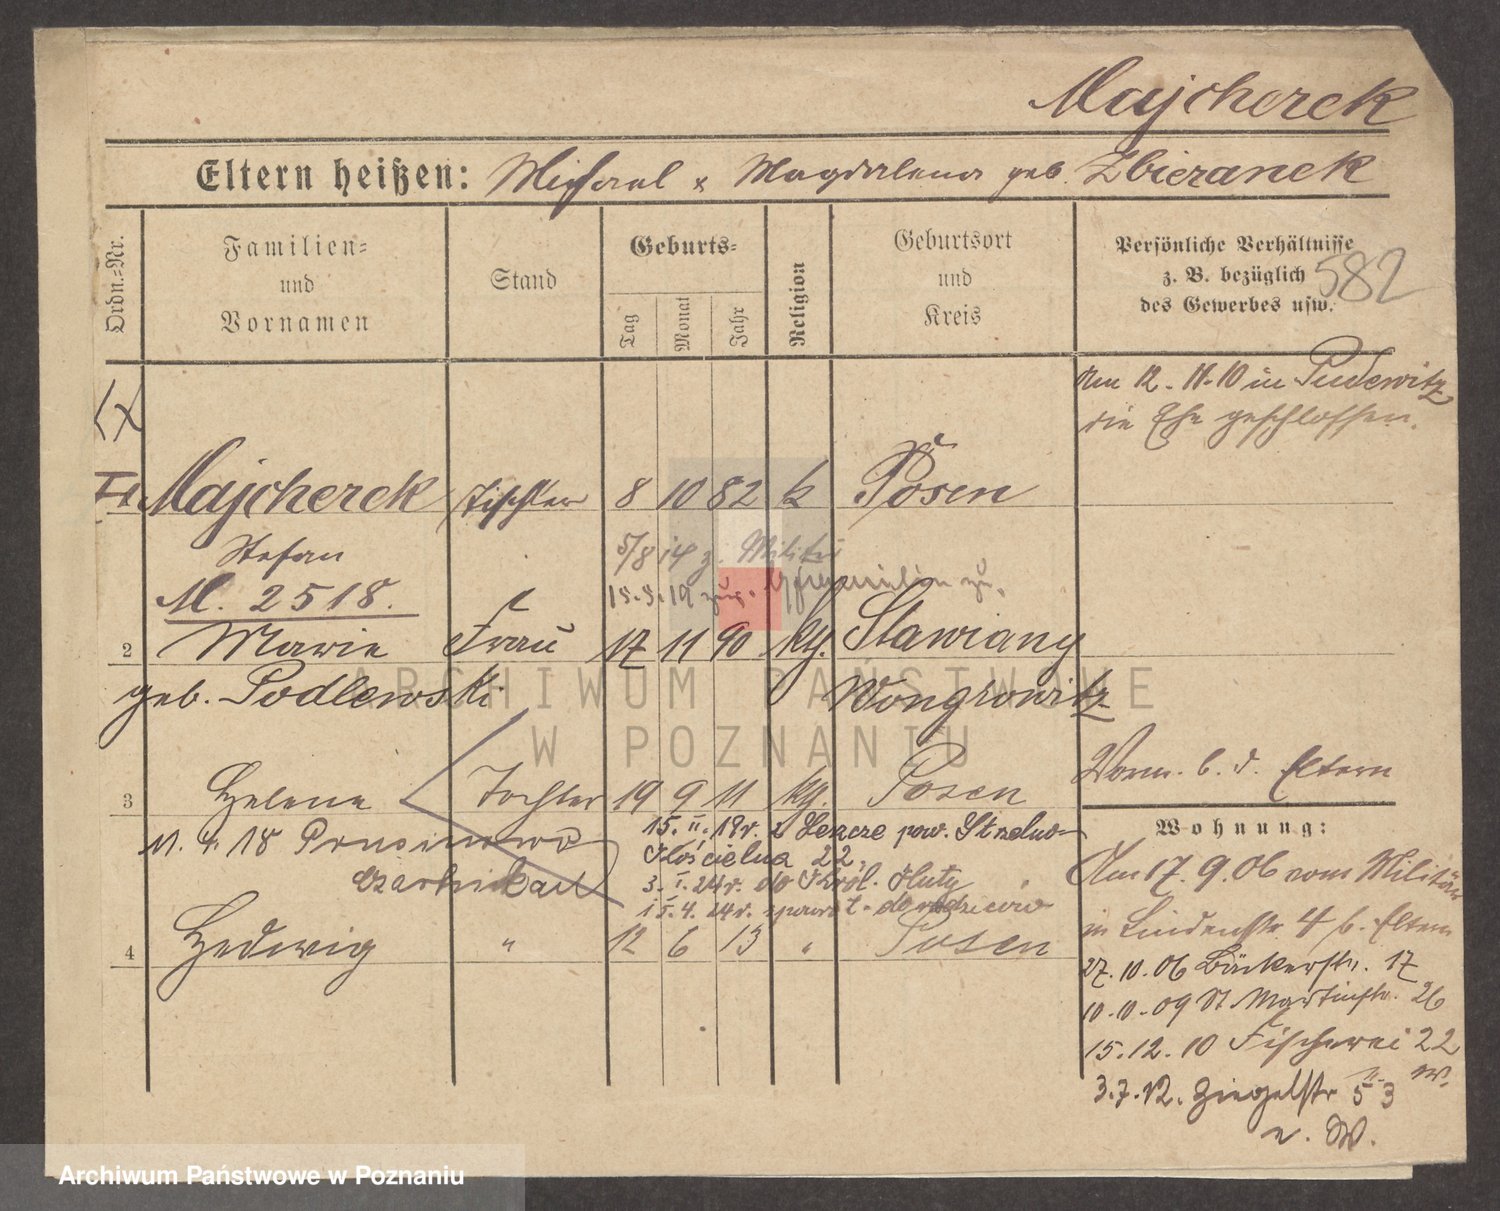 Majcherek
Eltern heißen: Michael x Magdalena geb. Zbieranek
Ordn.-Nr.
Familien-
und
Vornamen
Stand
Geburts-
Tag
Monat
Jahr
Religion
Geburtsort
und
Kreis
Persönliche Verhältnisse
z. B. bezüglich
des Gewerbes usw.
582
Am 12. 11. 10 in Pudewitz
die Ehe geschlossen.
Majcherek Tischler 8 10 82 k Posen
Stefan
5/8 14 z. Militär
M. 2518.
15.3.19 zug.
2 Marie Frau 17 11 90 kth. Stawiany
geb. Podlewski Wongrowitz
ARCHIWUM PAŃSTWOWE
W POZNANIU
3 Helene Tochter 19 9 11 kth. Posen
Worm. b. d. Eltern
11. 4. 18
15. II. 19r. z pow. Strzelno
Kościelna 22,
3. I. 24r. do Król. Huty
15. 4. 24r.
4 Hedwig " 12 6 13 " Posen
Wohnung:
Am 17. 9. 06 vom Militär
in Lindenstr. 4 b. Eltern
27. 10. 06 Bäckerstr. 17
10. 11. 09 St Martinstr. 26
15. 12. 10 Fischerei 22
3. 7. 12. Ziegelstr 53
n. W.
Archiwum Państwowe w Poznaniu